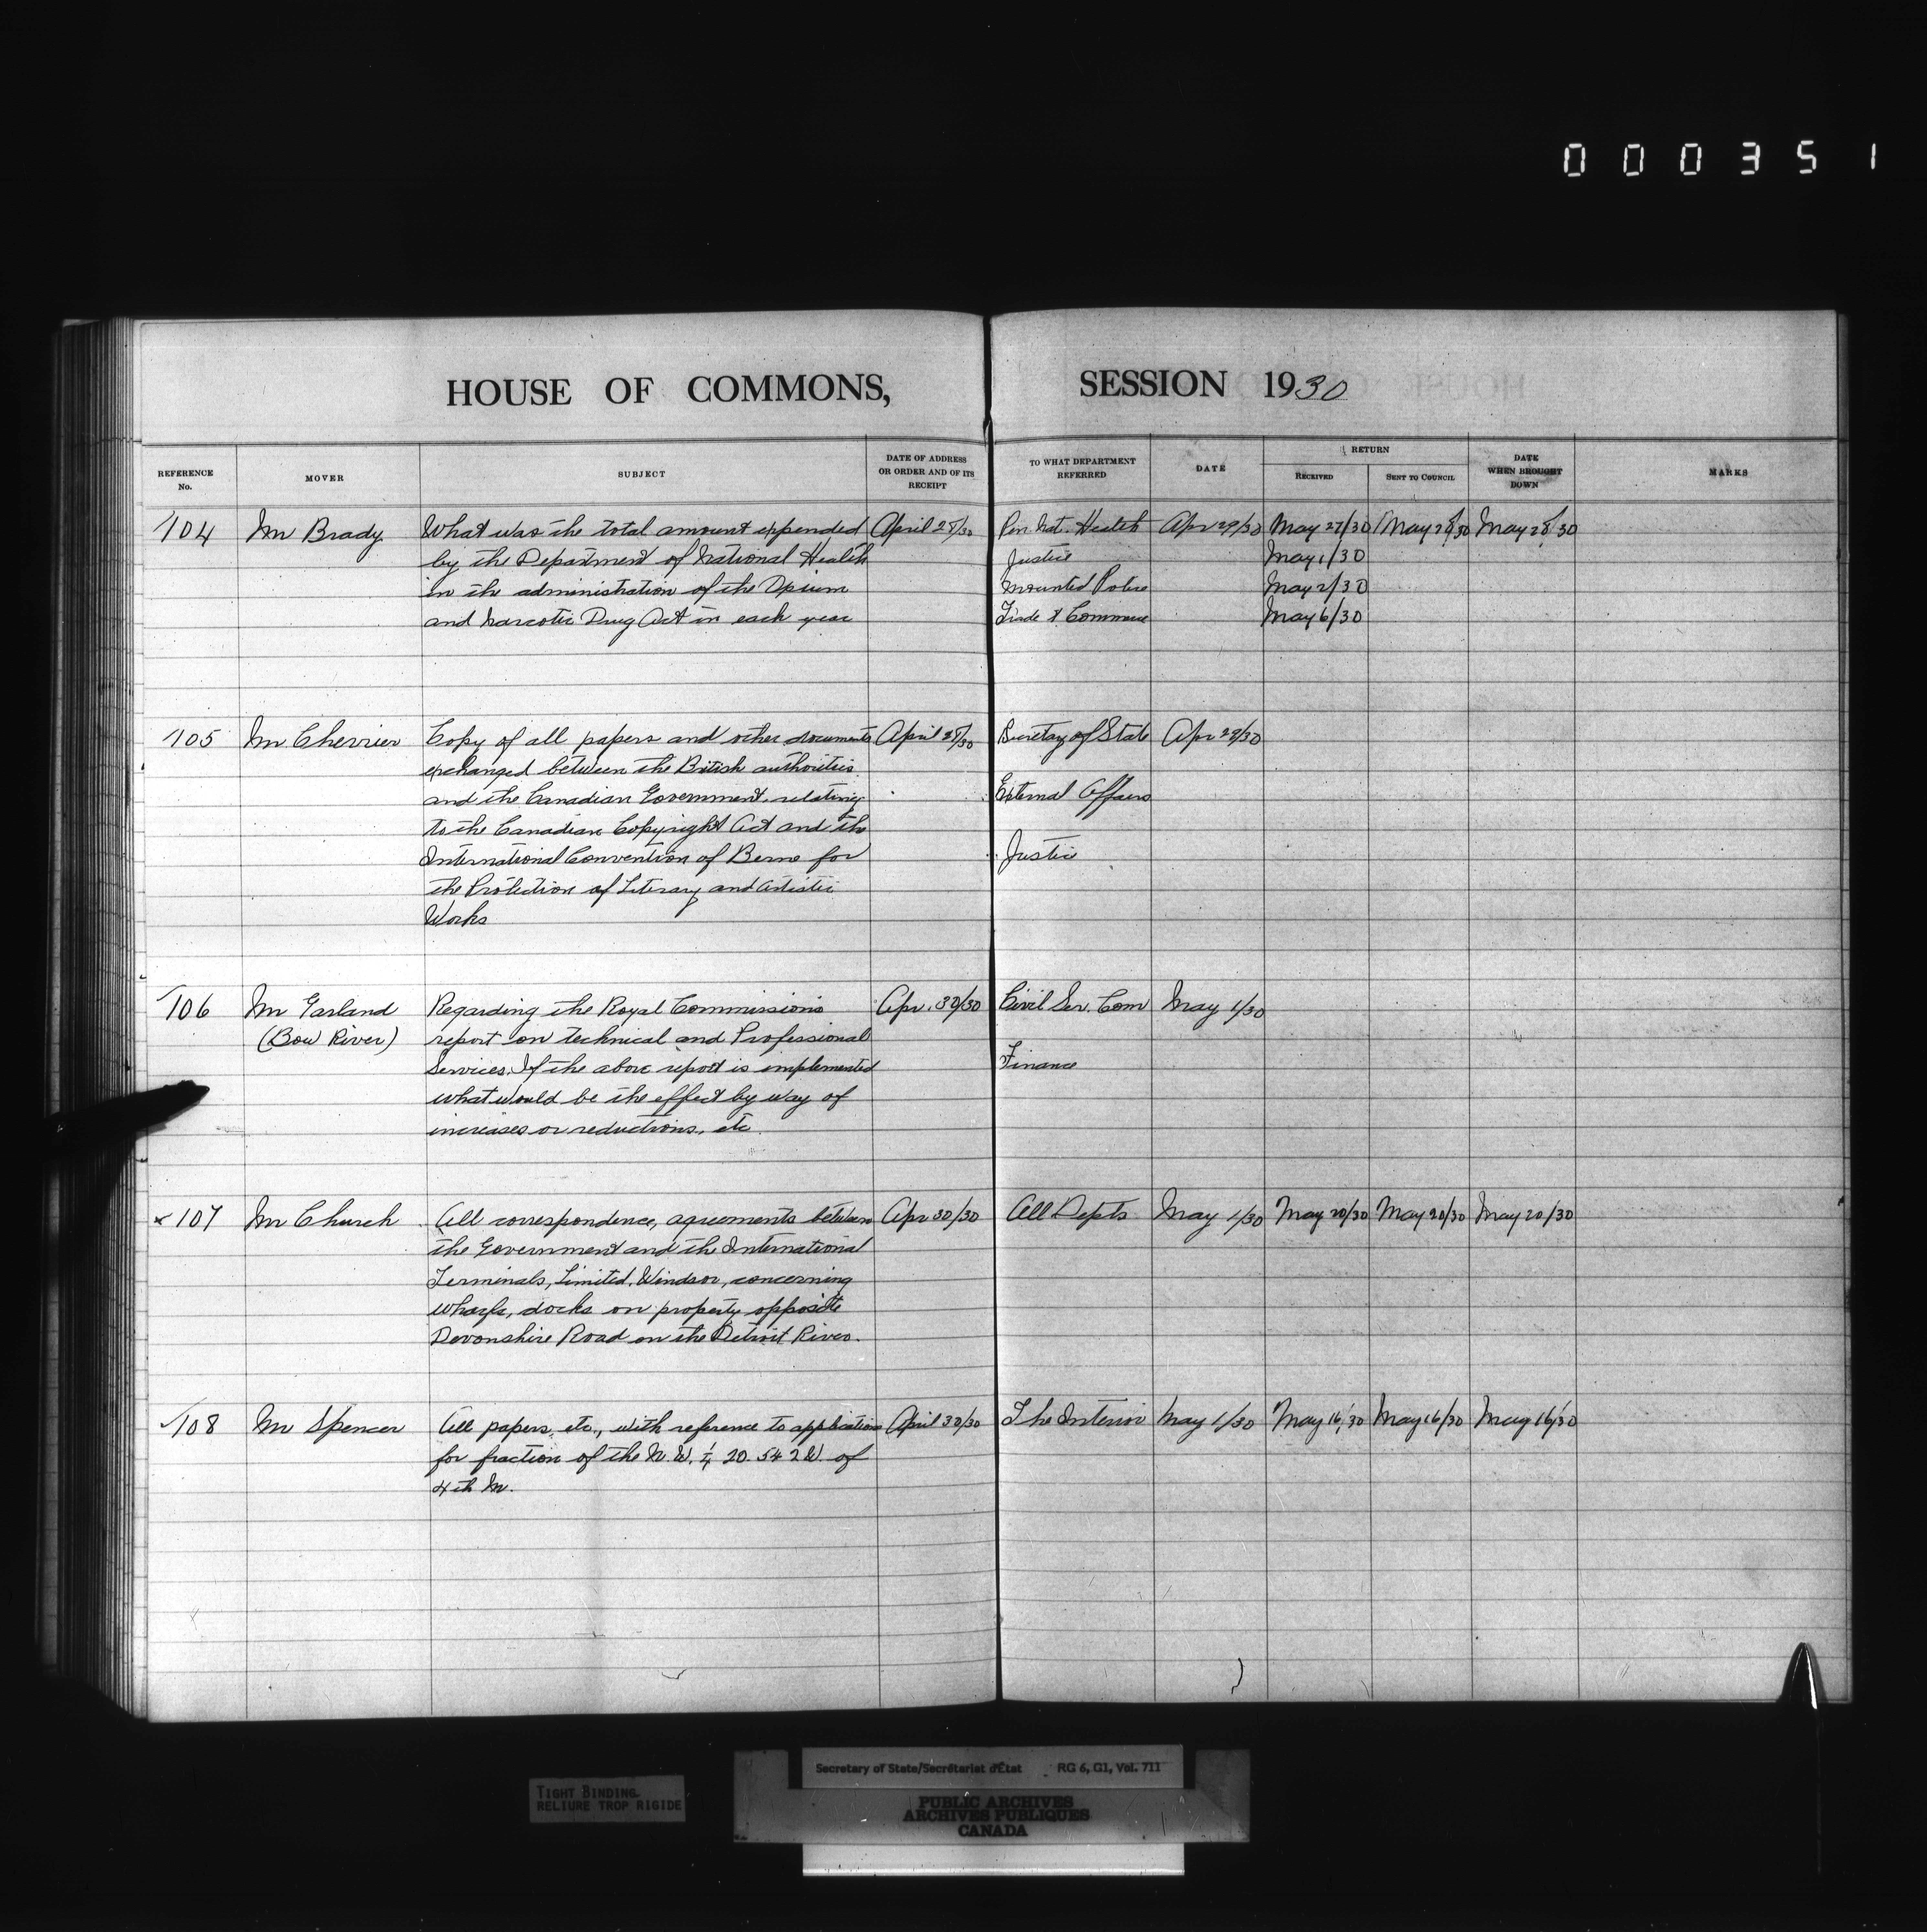 000351
HOUSE OF COMMONS, SESSION 1930
REFERENCE No. MOVER SUBJECT DATE OF ADDRESS OR ORDER AND OF ITS RECEIPT TO WHAT DEPARTMENT REFERRED DATE RETURN RECEIVED SENT TO COUNCIL DATE WHEN BROUGHT DOWN MARKS
104 Mr Brady What was the total amount expended April 28/30 Pen. Nat. Health Apr 29/30 May 27/30 May 28/30 May 28/30
by the Department of National Health Justice May 1/30
in the administration of the Opium Mounted Police May 2/30
and Narcotic Drug Act in each year Trade & Commerce May 6/30
105 Mr Chevrier Copy of all papers and other documents April 28/30 Secretary of State Apr 29/30
exchanged between the British authorities
and the Canadian Government, relating External Affairs
to the Canadian Copyright Act and the
International Convention of Berne for Justice
the Protection of Literary and Artistic
Works
106 Mr Garland Regarding the Royal Commissions Apr. 30/30 Civil Ser. Com May 1/30
(Bow River) report on technical and Professional
Services. If the above report is implemented Finance
what would be the effect by way of
increases or reductions, etc
x 107 Mr Church All correspondence, agreements between Apr 30/30 All Depts May 1/30 May 20/30 May 20/30 May 20/30
the Government and the International
Terminals, Limited, Windsor, concerning
wharfs, docks on property opposite
Devonshire Road on the Detroit River.
✓108 Mr Spencer All papers, etc., with reference to application April 30/30 The Interior May 1/30 May 16/30 May 16/30 May 16/30
for fraction of the N.W. ¼ 20. 54 2 W. of
4th M.
TIGHT BINDING
RELIURE TROP RIGIDE
Secretary of State/Secrétariat d'État RG 6, G1, Vol. 711
PUBLIC ARCHIVES
ARCHIVES PUBLIQUES
CANADA